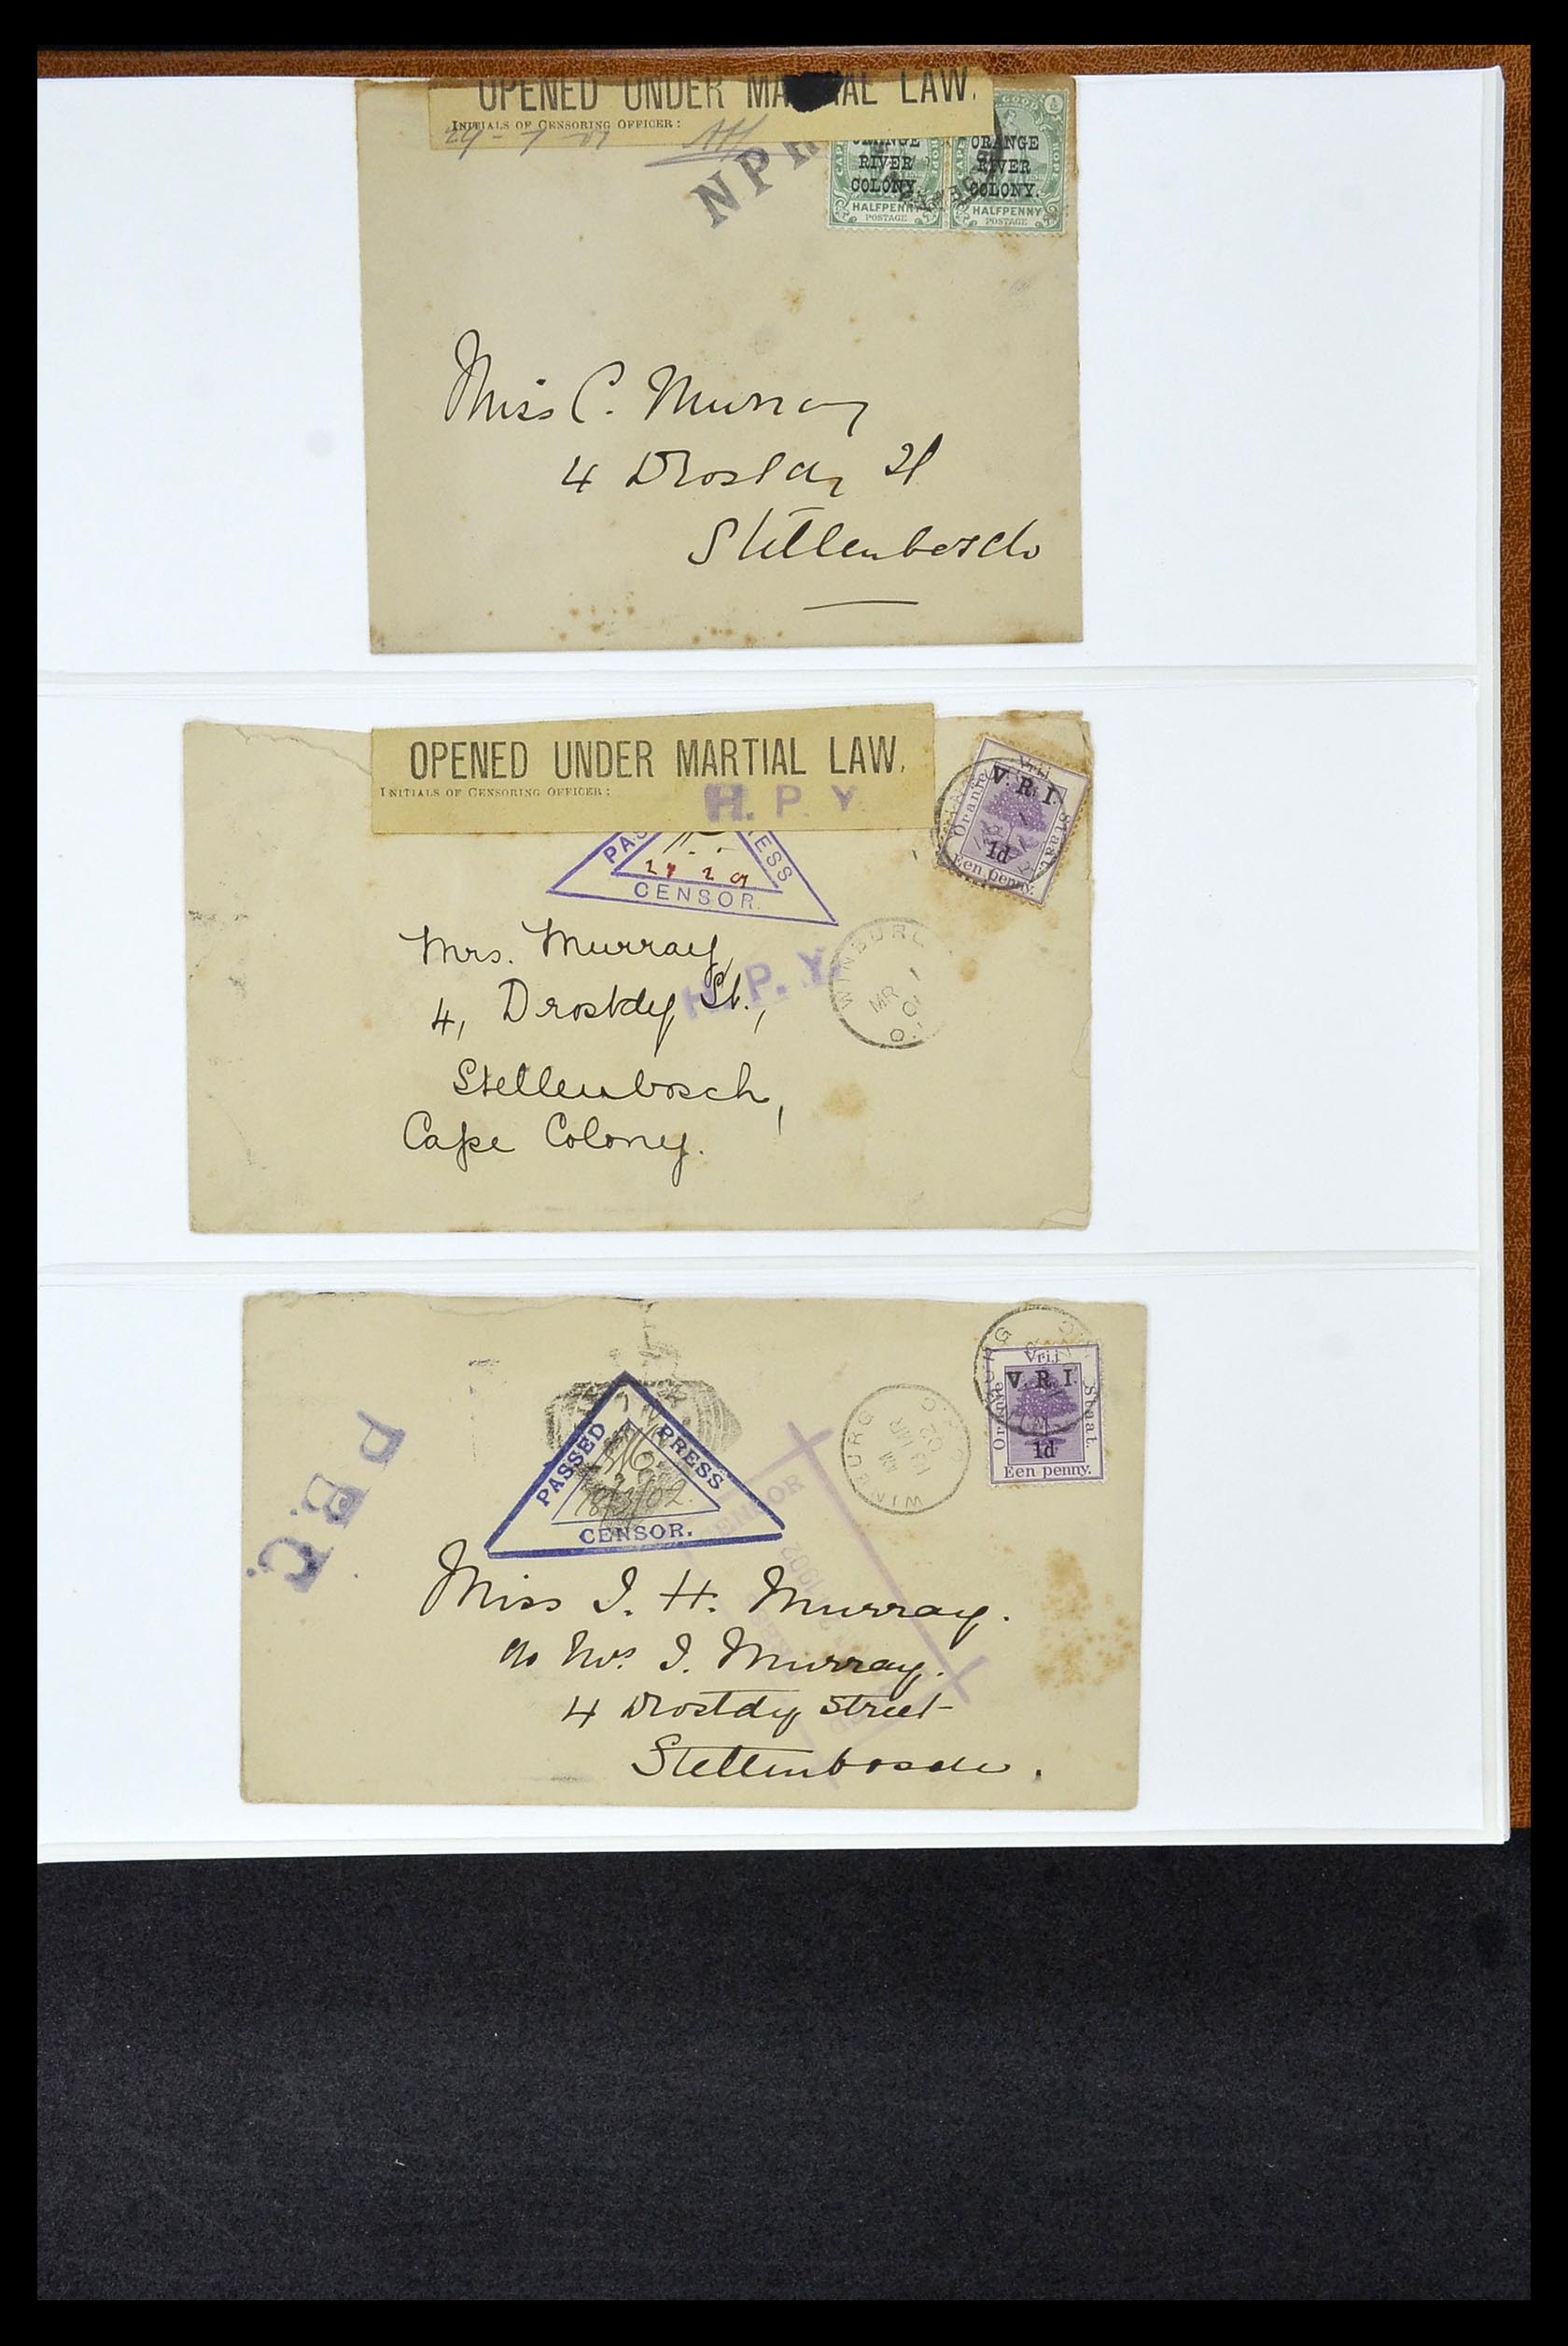 OPENED UNDER MARTIAL LAW.
INITIALS OF CENSORING OFFICER:
NPR
GOOD
ORANGE RIVER COLONY.
HALFPENNY
POSTAGE
ORANGE RIVER COLONY.
HALFPENNY
POSTAGE
Miss C. Murray
4 Drostdy St
Stellenbosch
OPENED UNDER MARTIAL LAW.
INITIALS OF CENSORING OFFICER:
H. P. Y.
CENSOR.
Vrij
V. R. I.
Oranje
Staat.
1d
Een penny.
WINBURG
MR 1
01
Mrs. Murray,
H. P. Y.
4, Drostdy St.,
Stellenbosch,
Cape Colony.
P B C
PASSED PRESS
18/3/02.
CENSOR.
CENSOR
1902
WINBURG
19 MR
02
Vrij
V. R. I.
Oranje
Staat.
1d
Een penny.
Miss I. H. Murray.
c/o Mrs I. Murray.
4 Drostdy Street
Stellenbosch.